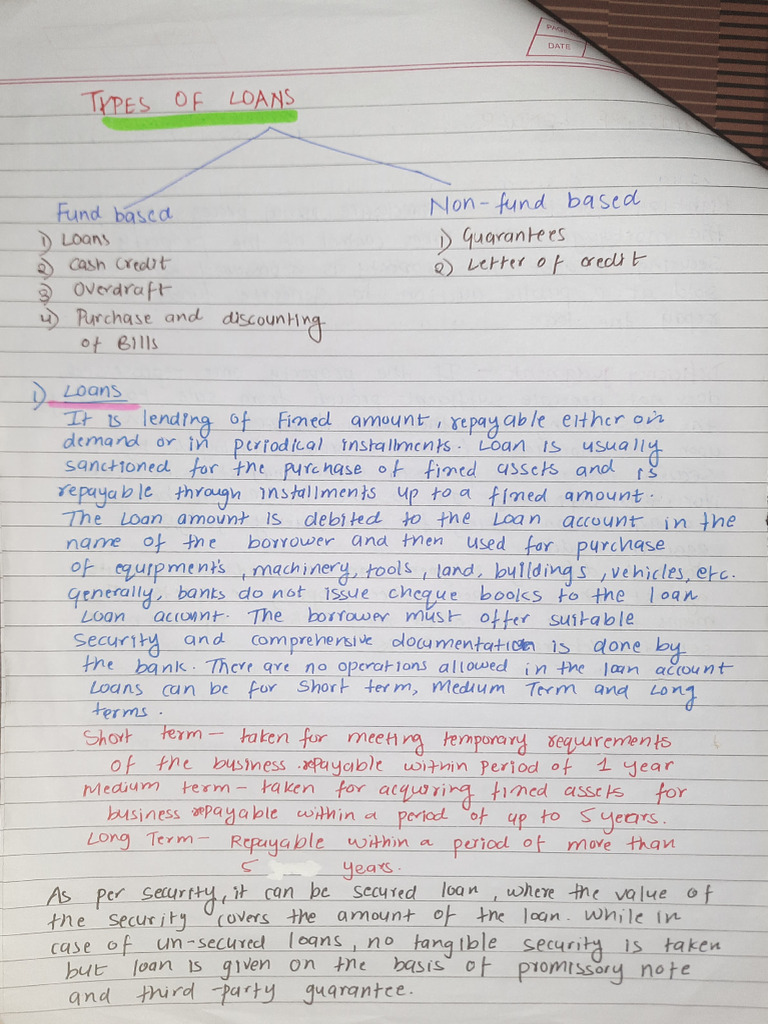 PAGE
DATE
TYPES OF LOANS
Fund based
1) Loans
2) Cash Credit
3) Overdraft
4) Purchase and discounting
of Bills
Non-fund based
1) Guarantees
2) Letter of credit
1) Loans
It is lending of Fixed amount, repayable either on
demand or in periodical installments. Loan is usually
sanctioned for the purchase of fixed assets and is
repayable through installments up to a fixed amount.
The Loan amount is debited to the Loan account in the
name of the borrower and then used for purchase
of equipments, machinery, tools, land, buildings, vehicles, etc.
Generally, banks do not issue cheque books to the loan
Loan account. The borrower must offer suitable
security and comprehensive documentation is done by
the bank. There are no operations allowed in the loan account
Loans can be for Short term, Medium Term and Long
terms.
Short term - taken for meeting temporary requirements
of the business. repayable within period of 1 year
Medium term - taken for acquring fixed assets for
business repayable within a period of up to 5 years.
Long Term - Repayable within a period of more than
5 years.
As per security, it can be secured loan, where the value of
the security covers the amount of the loan. While in
case of un-secured loans, no tangible security is taken
but loan is given on the basis of promissory note
and third-party guarantee.